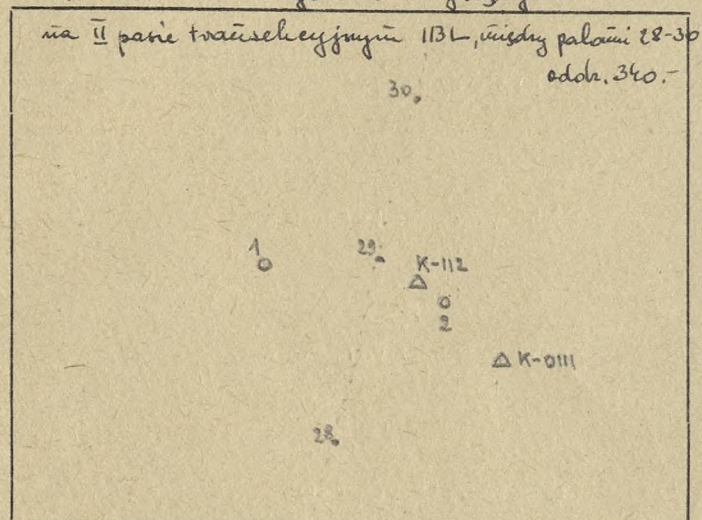 na II pasie transekcyjnym IBL, między palami 28-30
oddz. 340.-
30.
1
29.
K-112
2
K-0111
28.